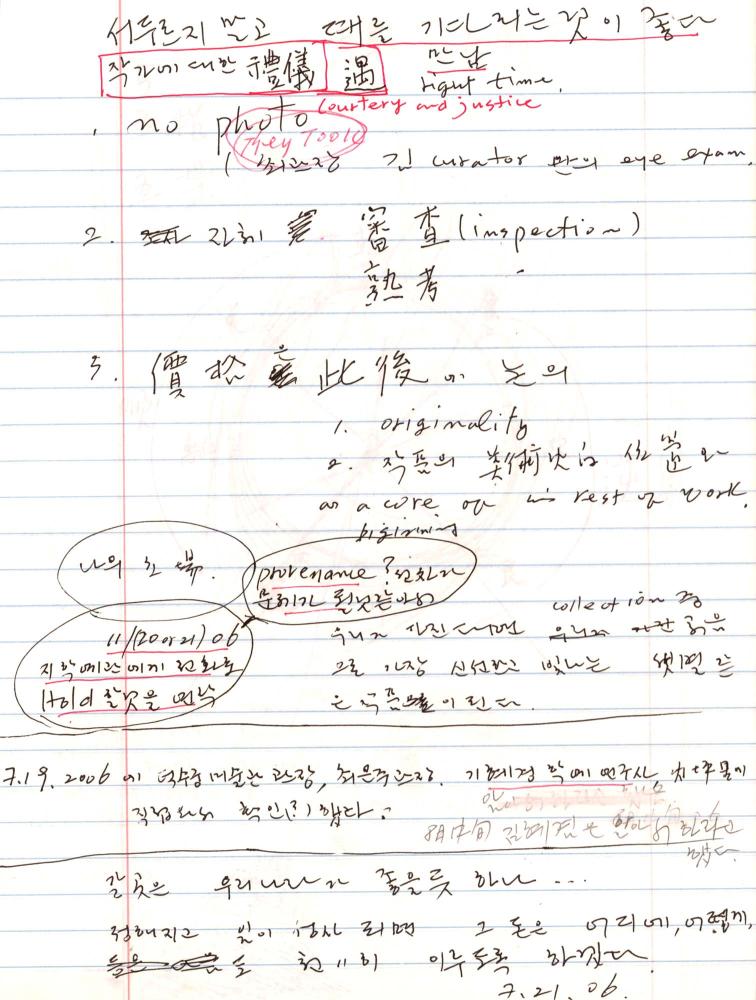 서두르지 말고 때를 기다리는 것이 좋다
작가에 대한 禮儀 遇 만남
right time.
courtery and justice
. no photo
They Took
(최관장 김 curator 만의 eye exam.
2. 자체 審査 (inspection)
熟考
3. 價格은 此後에 논의
1. originality
2. 작품의 美術史的 位置와
as a core of his rest of work.
biginning
나의 立場.
provename?
문제가 될 것 같아서
11/(20 or 21) 06
지 학예관에게 전화로
Hold 할 것을 연락
collection 중
우리가 가진다면
그중 가장 신선하고 빛나는 샛별 같
은 작품이 된다.
7.19.2006 에 덕수궁 미술관 관장, 최은주 관장. 기혜경 학예연구사,
직접 와서 확인(?) 했다.
8月中旬 김혜경은 하라고
했다.
갈 곳은 우리나라가 좋을 듯 하나 ...
정해지고 일이 성사 되면 그 돈은 어디에, 어떻게,
천천히 이루도록 하겠다.
7.21.06.